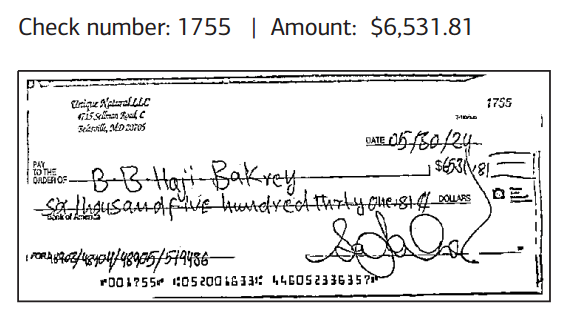 Check number: 1755 | Amount: $6,531.81
Unique Natural LLC
4715 Sellman Road, C
Beltsville, MD 20705
1755
DATE 05/30/24
PAY
TO THE
ORDER OF B B Haji Bakrey $6531.81
Six thousand five hundred thirty one 81 DOLLARS
Bank of America
FOR 48903/48904/48905/519486
⑈001755⑈ ⑆052001633⑆ 446052336357⑈